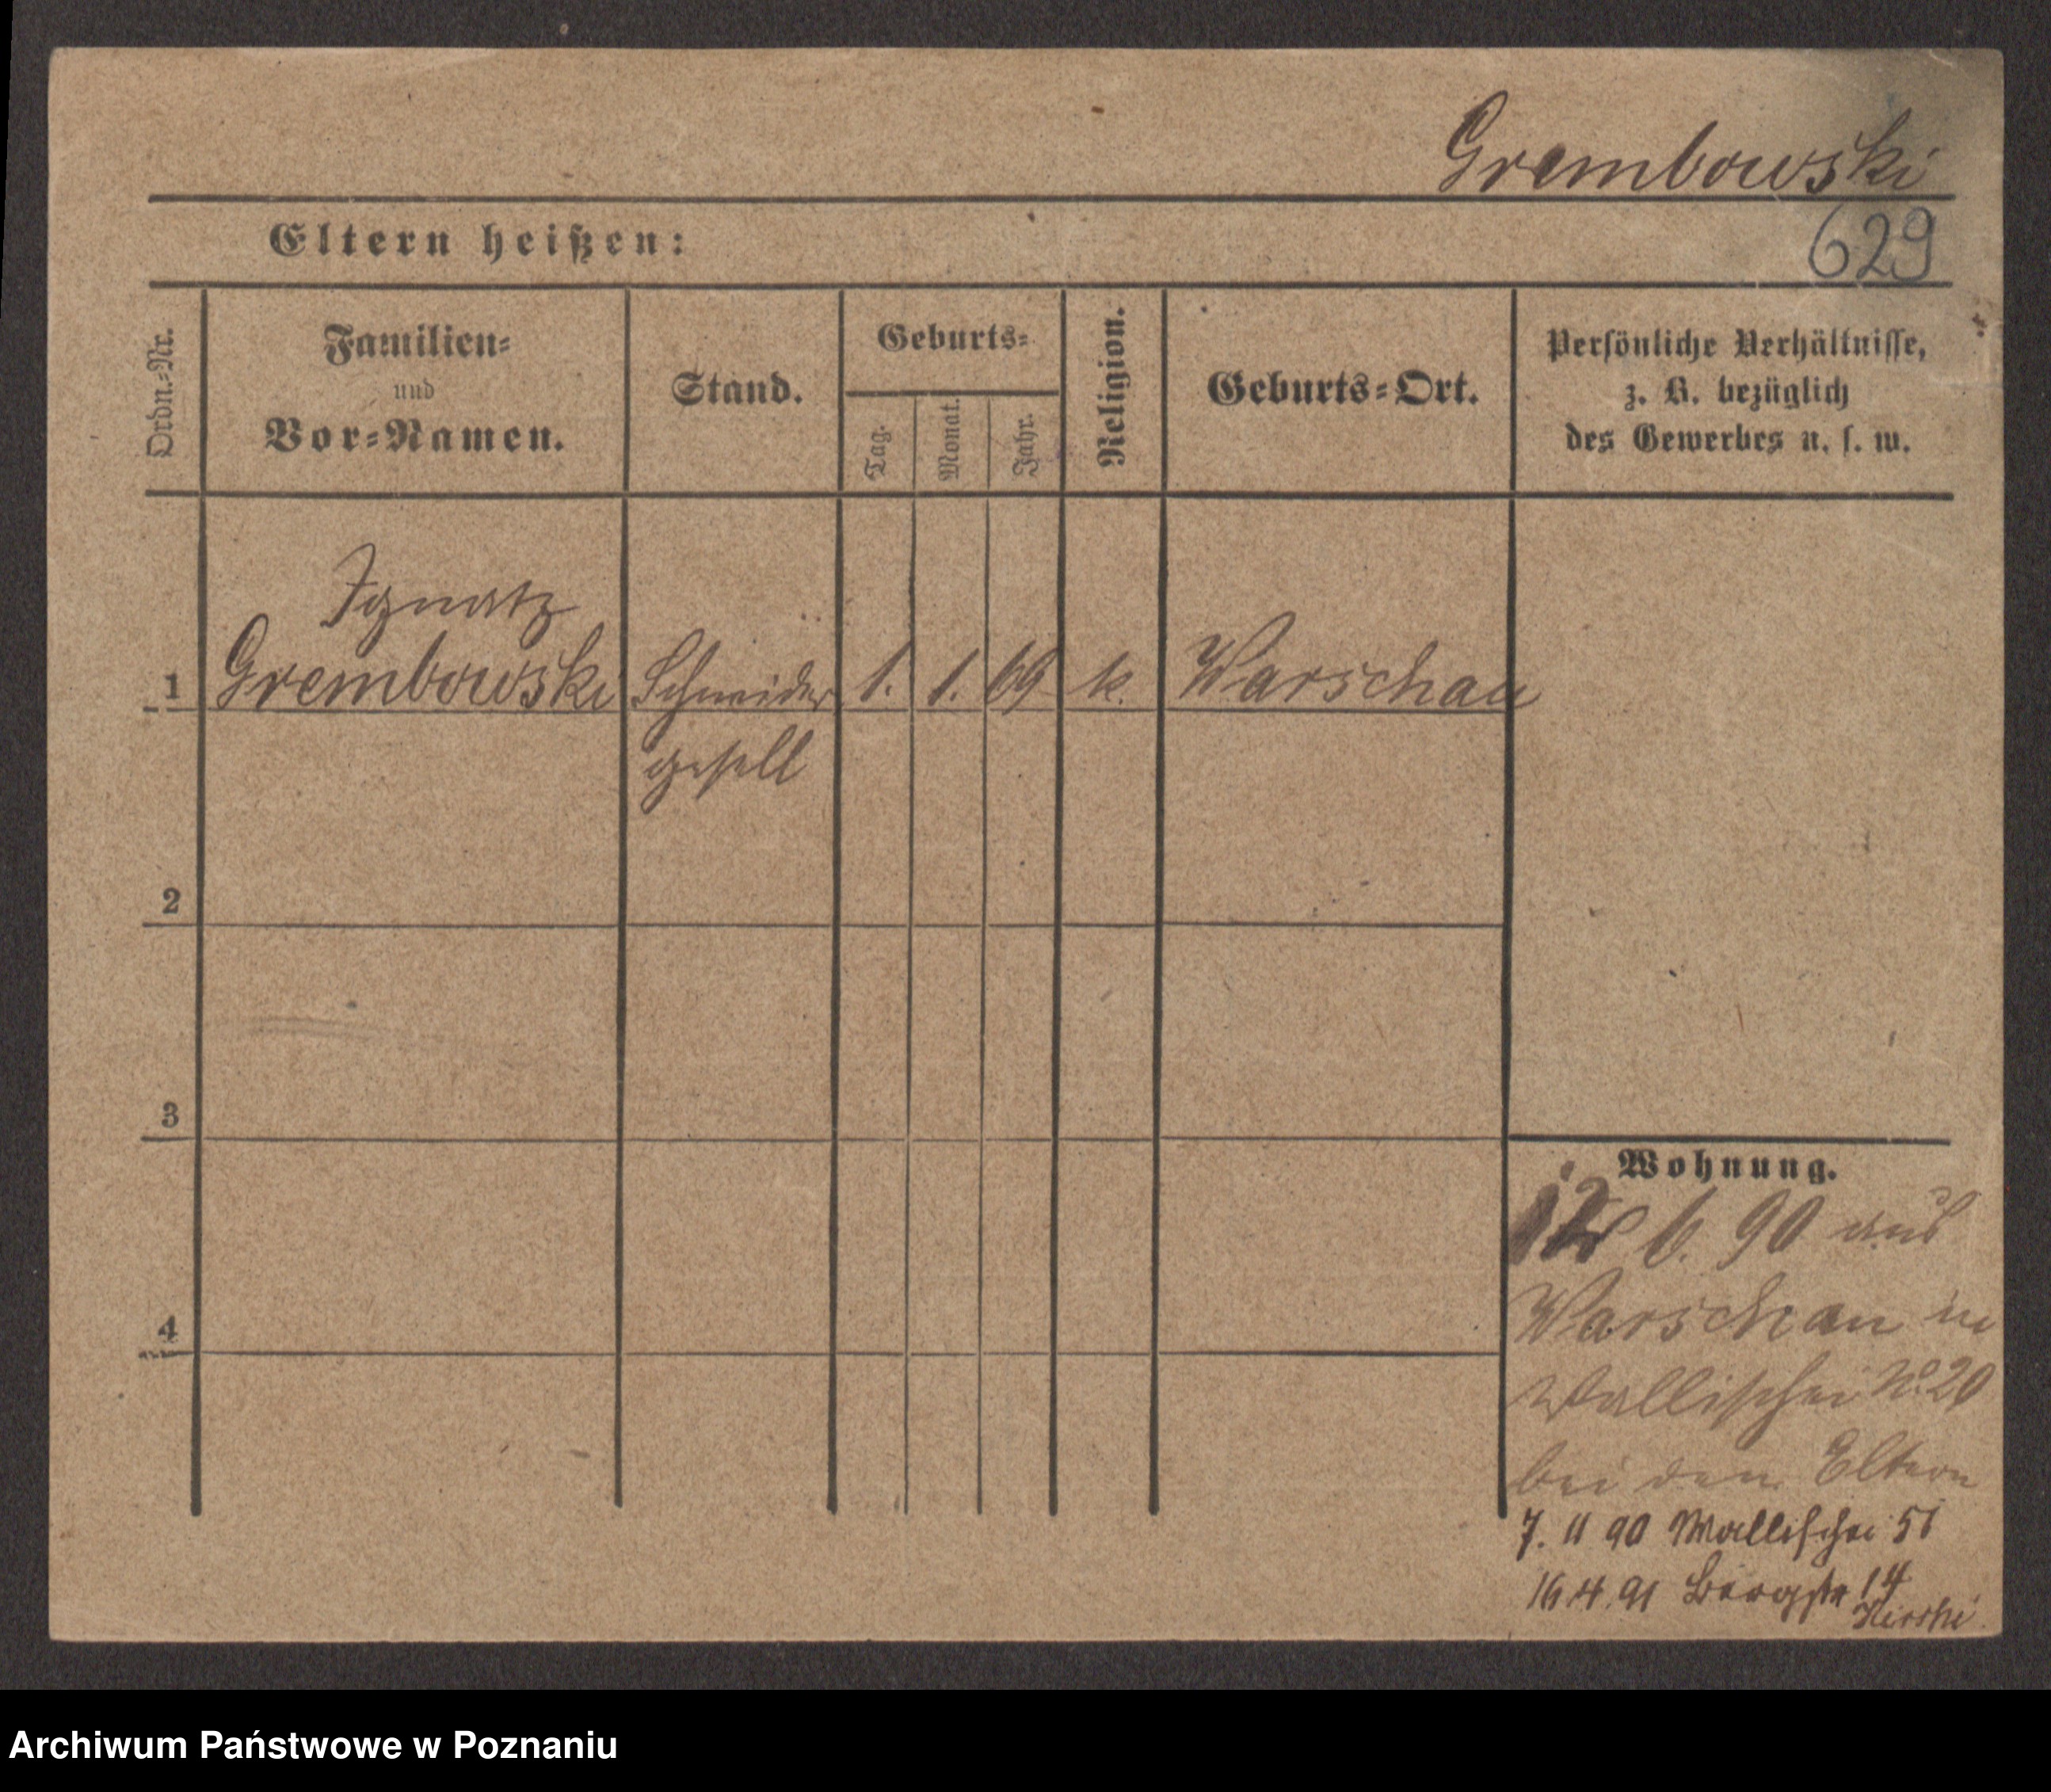 Grembowski
629
Eltern heißen:
Ordn.=Nr.
Familien=
und
Vor=Namen.
Stand.
Geburts=
Tag.
Monat.
Jahr.
Religion.
Geburts=Ort.
Persönliche Verhältnisse,
z. B. bezüglich
des Gewerbes u. s. w.
Ignatz
1 Grembowski Schneider 1. 1. 69 k. Warschau
gesell
2
3
4
Wohnung.
12 6. 90 aus
Warschau in
Wallischei No 20
bei den Eltern
7. 11 90 Wallischei 51
16.4.91 Bergstr 14
Archiwum Państwowe w Poznaniu